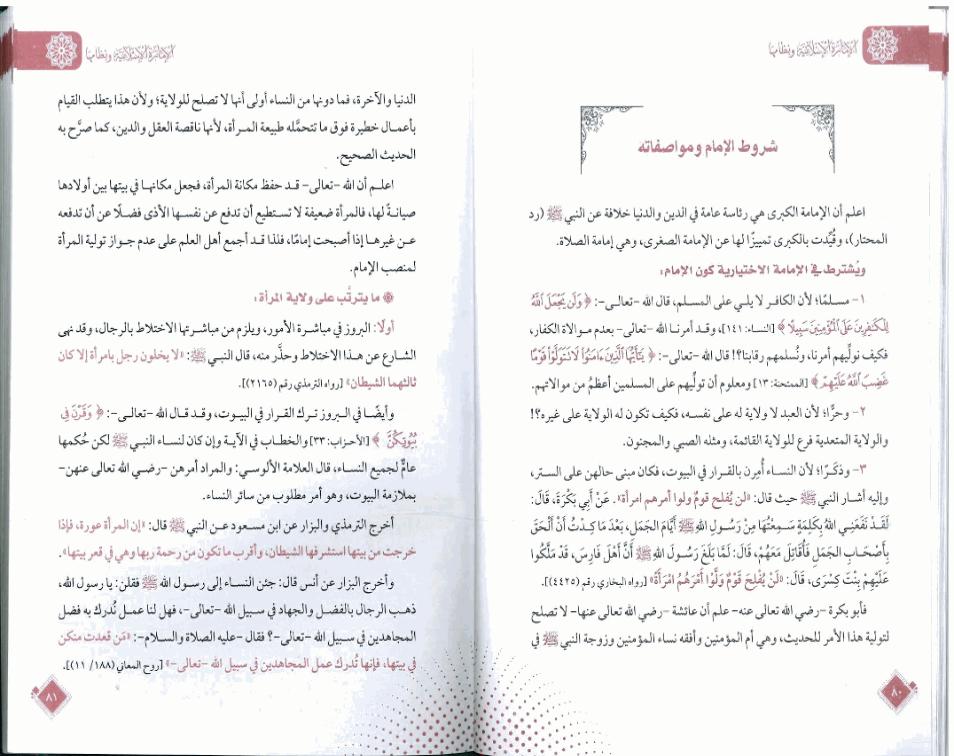 الإمارة الإسلامية ونظامها
شروط الإمام ومواصفاته
اعلم أن الإمامة الكبرى هي رئاسة عامة في الدين والدنيا خلافة عن النبي ﷺ (رد
المحتار)، وقُيِّدت بالكبرى تمييزًا لها عن الإمامة الصغرى، وهي إمامة الصلاة.
ويُشترط في الإمامة الاختيارية كون الإمام:
١- مسلمًا؛ لأن الكافر لا يلي على المسلم، قال الله -تعالى-: ﴿ وَلَن يَجْعَلَ ٱللَّهُ
لِلْكَـٰفِرِينَ عَلَى ٱلْمُؤْمِنِينَ سَبِيلًا ﴾ [النساء: ١٤١]، وقد أمرنا الله -تعالى- بعدم موالاة الكفار،
فكيف نولِّيهم أمرنا، ونُسلمهم رقابنا؟! قال الله -تعالى-: ﴿ يَـٰٓأَيُّهَا ٱلَّذِينَ ءَامَنُوا۟ لَا تَتَوَلَّوْا۟ قَوْمًا
غَضِبَ ٱللَّهُ عَلَيْهِمْ ﴾ [الممتحنة: ١٣] ومعلوم أن تولِّيهم على المسلمين أعظمُ من موالاتهم.
٢- وحرًّا؛ لأن العبد لا ولاية له على نفسه، فكيف تكون له الولاية على غيره؟!
والولاية المتعدية فرع للولاية القائمة، ومثله الصبي والمجنون.
٣- وذكَرًا؛ لأن النساء أُمِرن بالقرار في البيوت، فكان مبنى حالهن على الستر،
وإليه أشار النبي ﷺ حيث قال: «لن يُفلح قومٌ ولوا أمرهم امرأة». عَنْ أَبِي بَكْرَةَ، قَالَ:
لَقَدْ نَفَعَنِي اللهُ بِكَلِمَةٍ سَمِعْتُهَا مِنْ رَسُولِ اللهِ ﷺ أَيَّامَ الجَمَلِ، بَعْدَ مَا كِدْتُ أَنْ أَلْحَقَ
بِأَصْحَابِ الجَمَلِ فَأُقَاتِلَ مَعَهُمْ، قَالَ: لَمَّا بَلَغَ رَسُولَ اللهِ ﷺ أَنَّ أَهْلَ فَارِسَ، قَدْ مَلَّكُوا
عَلَيْهِمْ بِنْتَ كِسْرَى، قَالَ: «لَنْ يُفْلِحَ قَوْمٌ وَلَّوْا أَمْرَهُمُ امْرَأَةً» [رواه البخاري رقم (٤٤٢٥)].
فأبو بكرة -رضي الله تعالى عنه- علم أن عائشة -رضي الله تعالى عنها- لا تصلح
لتولية هذا الأمر للحديث، وهي أم المؤمنين وأفقه نساء المؤمنين وزوجة النبي ﷺ في
٨٠
الإمارة الإسلامية ونظامها
الدنيا والآخرة، فما دونها من النساء أولى أنها لا تصلح للولاية؛ ولأن هذا يتطلب القيام
بأعمال خطيرة فوق ما تتحمَّله طبيعة المرأة، لأنها ناقصة العقل والدين، كما صرَّح به
الحديث الصحيح.
اعلم أن الله -تعالى- قد حفظ مكانة المرأة، فجعل مكانها في بيتها بين أولادها
صيانةً لها، فالمرأة ضعيفة لا تستطيع أن تدفع عن نفسها الأذى فضلًا عن أن تدفعه
عن غيرها إذا أصبحت إمامًا، فلذا قد أجمع أهل العلم على عدم جواز تولية المرأة
لمنصب الإمام.
ما يترتَّب على ولاية المرأة:
أولًا: البروز في مباشرة الأمور، ويلزم من مباشرتها الاختلاط بالرجال، وقد نهى
الشارع عن هذا الاختلاط وحذَّر منه، قال النبي ﷺ: «لا يخلون رجل بامرأة إلا كان
ثالثهما الشيطان» [رواه الترمذي رقم (٢١٦٥)].
وأيضًا في البروز ترك القرار في البيوت، وقد قال الله -تعالى-: ﴿ وَقَرْنَ فِى
بُيُوتِكُنَّ ﴾ [الأحزاب: ٣٣] والخطاب في الآية وإن كان لنساء النبي ﷺ لكن حُكمها
عامٌّ لجميع النساء، قال العلامة الألوسي: والمراد أمرهن -رضي الله تعالى عنهن-
بملازمة البيوت، وهو أمر مطلوب من سائر النساء.
أخرج الترمذي والبزار عن ابن مسعود عن النبي ﷺ قال: «إن المرأة عورة، فإذا
خرجت من بيتها استشرفها الشيطان، وأقرب ما تكون من رحمة ربها وهي في قعر بيتها».
وأخرج البزار عن أنس قال: جئن النساء إلى رسول الله ﷺ فقلن: يا رسول الله،
ذهب الرجال بالفضل والجهاد في سبيل الله -تعالى-، فهل لنا عمل نُدرك به فضل
المجاهدين في سبيل الله -تعالى-؟ فقال -عليه الصلاة والسلام-: «مَن قعدت منكن
في بيتها، فإنها تُدرك عمل المجاهدين في سبيل الله -تعالى-» [روح المعاني (١٨٨/ ١١)].
٨١